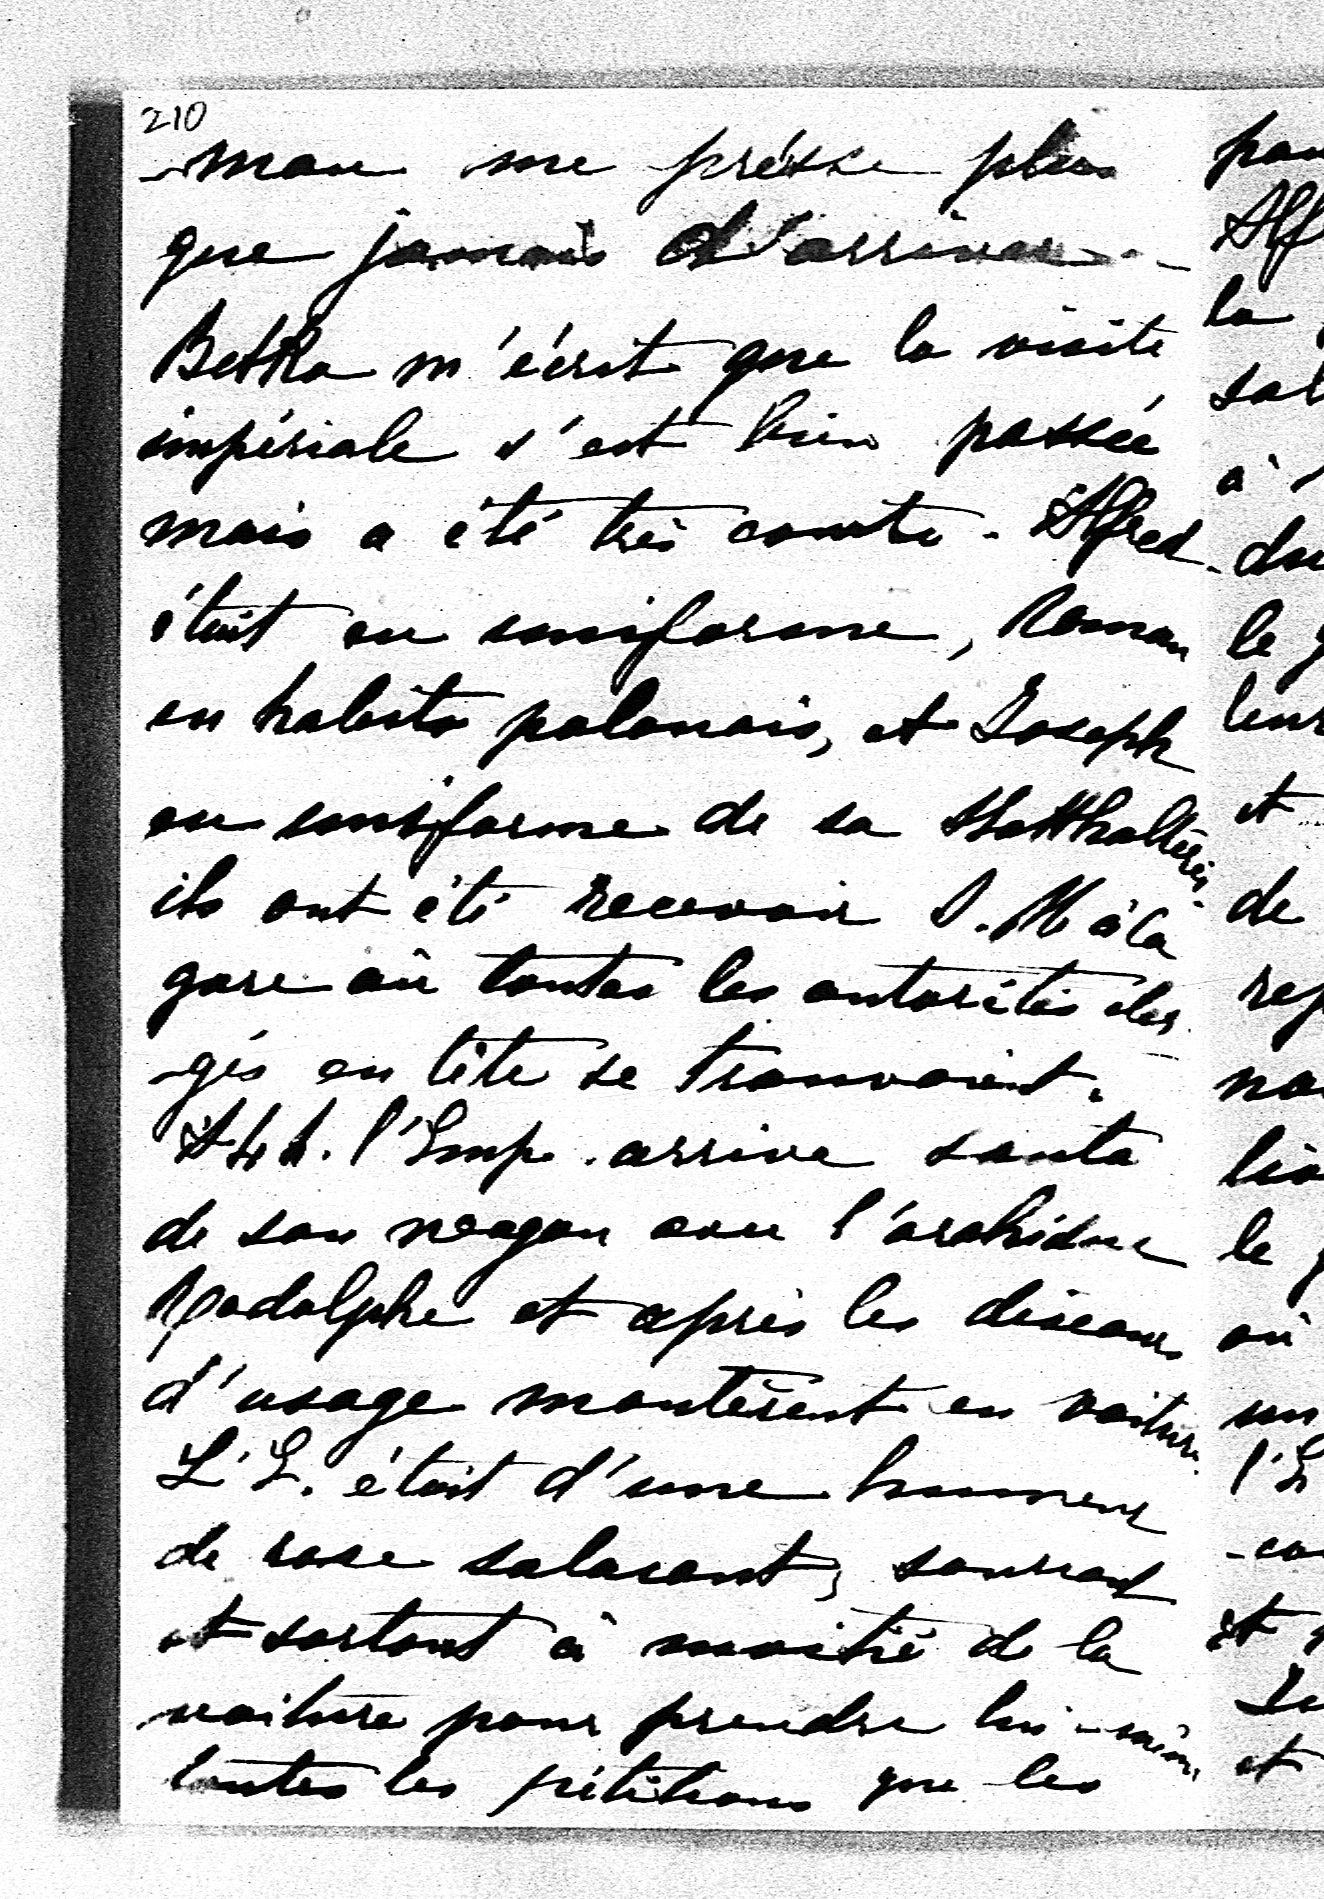 210
-man me presse plus
que jamais d'arriver -
Betka m'écrit que la visite
impériale s'est bien passée
mais a été très courte. Alfred
était en uniforme, Roman
en habits polonais, et Joseph
en uniforme de sa Statthalterei
ils ont été recevoir S. M à la
gare où toutes les autorités cler
-gés en tête se trouvaient.
l'Emp. arrive sauta
de son wagon avec l'archiduc
Rodolphe et après les discours
d'usage montèrent en voiture.
L'E. était d'une humeur
de rose saluant, souriant
et sortant à moitié de la
voiture pour prendre lui-même
toutes les pétitions que les
pou
Alf
la
sal
à
du
le
leur
et
de
rep
no
le
où
un
l'E
et
et